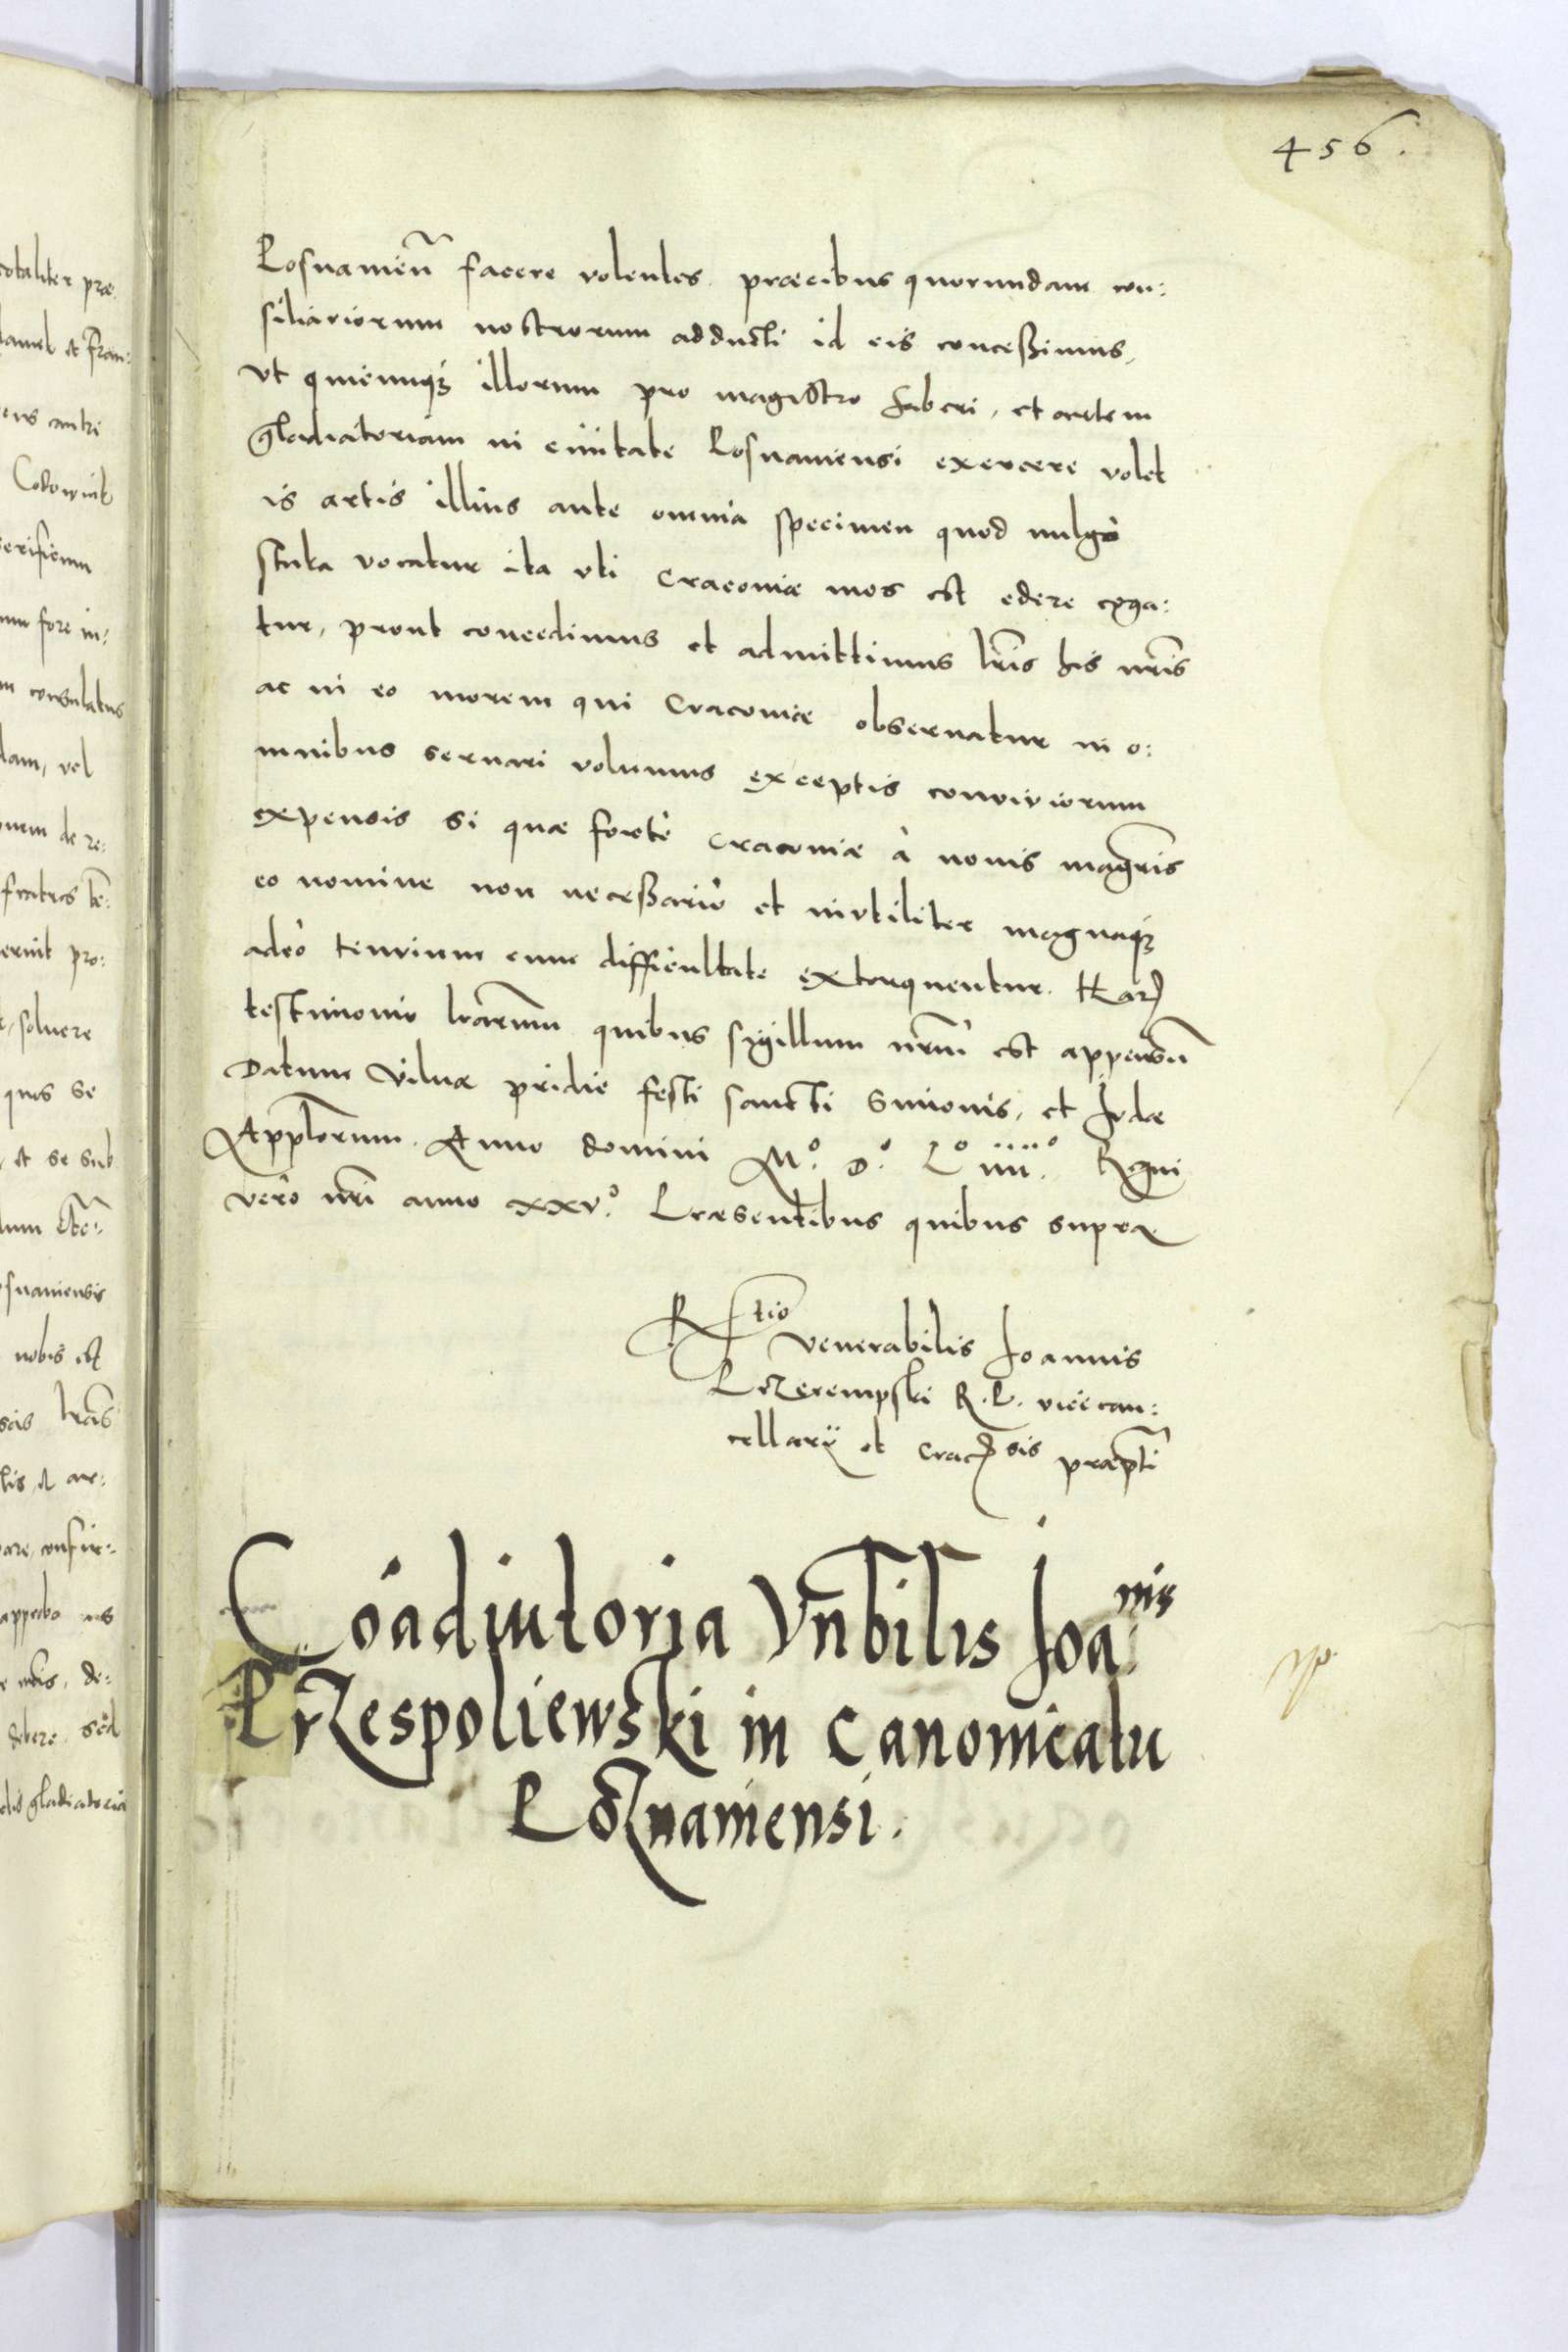 456.
Posnanien̄ facere volentes. præcibus quorundam con:
siliariorum nostrorum adducti id eis conceßimus,
vt quicunqꝫ illorum pro magistro haberi, et artem
gladiatoriam in ciuitate Posnaniensi exercere volet
is artis illius ante omnia specimen quod uulgò
stuka vocatur ita vti Cracouiæ mos est edere coga:
tur, prout concedimus et admittimus lr̄is his nr̄is
ac in eo morem qui Cracouiæ obseruatur in o:
mnibus seruari volumus exceptis conviviorum
expensis si quæ fortè Cracouiæ à nouis magr̄is
eo nomine non neceßariò et inutiliter magnaqꝫ
adeò tenuium cum difficultate extorquentur. Har
testimonio lr̄arum quibus sigillum nr̄m est appensū
Datum Vilnæ pridie festi sancti Simonis, et Iudæ
Appl̄orum. Anno domini Mº. Dº. Lº iiiiº. Regni
verò nr̄i anno xxvº. Præsentibus quibus supra
Rtio venerabilis Ioannis
Przerempski R. P. vicecan:
cellarij et Cracsis præpti
Coadiutoria Vn̄bilis Ioa:nis
Przespoliewski in Canonicatu
Poznaniensi.
totaliter præ
et Fran:
fore in:
consulatus
dam, vel
onem de re:
fratres
pro:
soluere
quis se
et se sub
osnaniensis
nobis est
lr̄as
ar:
confir:
de:
debere. sed
gladiatoria